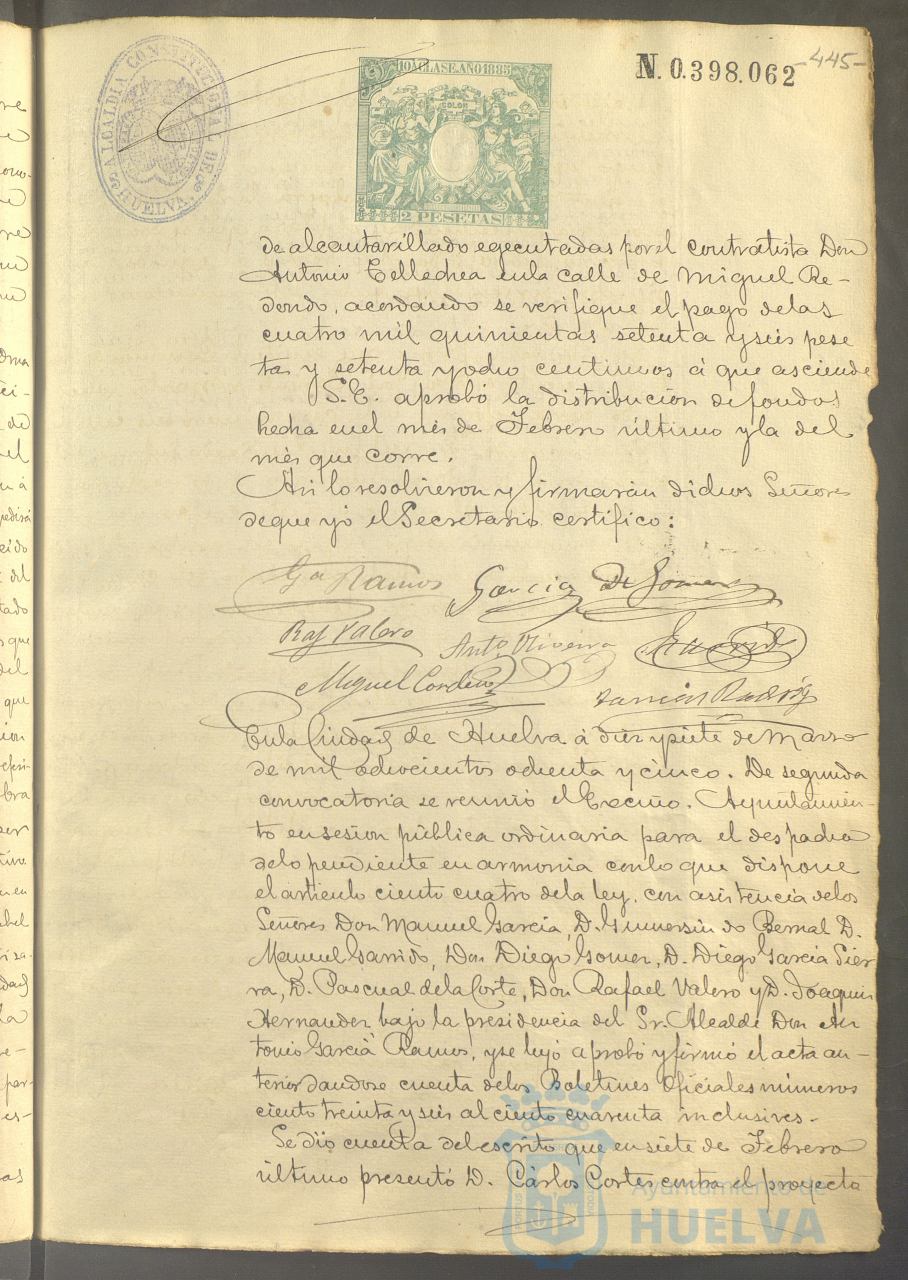 ALCALDIA CONSTITUCIONAL DE HUELVA
10A CLASE.AÑO 1885
COLON
2 PESETAS
N.0.398.062
-445-
de alcantarillado egecutadas por el contratista Don
Antonio Tellechea en la calle de Miguel Re-
dondo, acordando se verifique el pago de las
cuatro mil quinientas setenta y seis pese
tas y setenta y ocho centimos á que asciende
S.E. aprobó la distribucion de fondos
hecha en el mes de Febrero último y la del
més que corre.
Asi lo resolvieron y firmarán dichos Señores
de que yó el Secretario certifico:
Ga Ramos Garcia D. Gomez
Raf Valero Anto Oliveira
Miguel Cordero
En la Ciudad de Huelva á diez y siete de Marzo
de mil ochocientos ochenta y cinco. De segunda
convocatoria se reunió el Excmo. Ayuntamien-
to en sesion pública ordinaria para el despacho
de lo pendiente en armonia con lo que dispone
el articulo ciento cuatro de la ley, con asistencia de los
Señores Don Manuel Garcia, D. Gumersindo Bernal D.
Manuel Garrido, Don Diego Gomez, D. Diego Garcia Sier
ra, D. Pascual de la Corte, Don Rafael Valero y D. Joaquin
Hernandez bajo la presidencia del Sr. Alcalde Don An
tonio Garcia Ramos, y se leyó aprobó y firmó el acta an-
terior dandose cuenta de los Boletines Oficiales números
ciento treinta y seis al ciento cuarenta inclusives.
Se dio cuenta del escrito que en siete de Febrero
último presentó D. Cárlos Cortes contra el proyecto
Ayuntamiento de
HUELVA